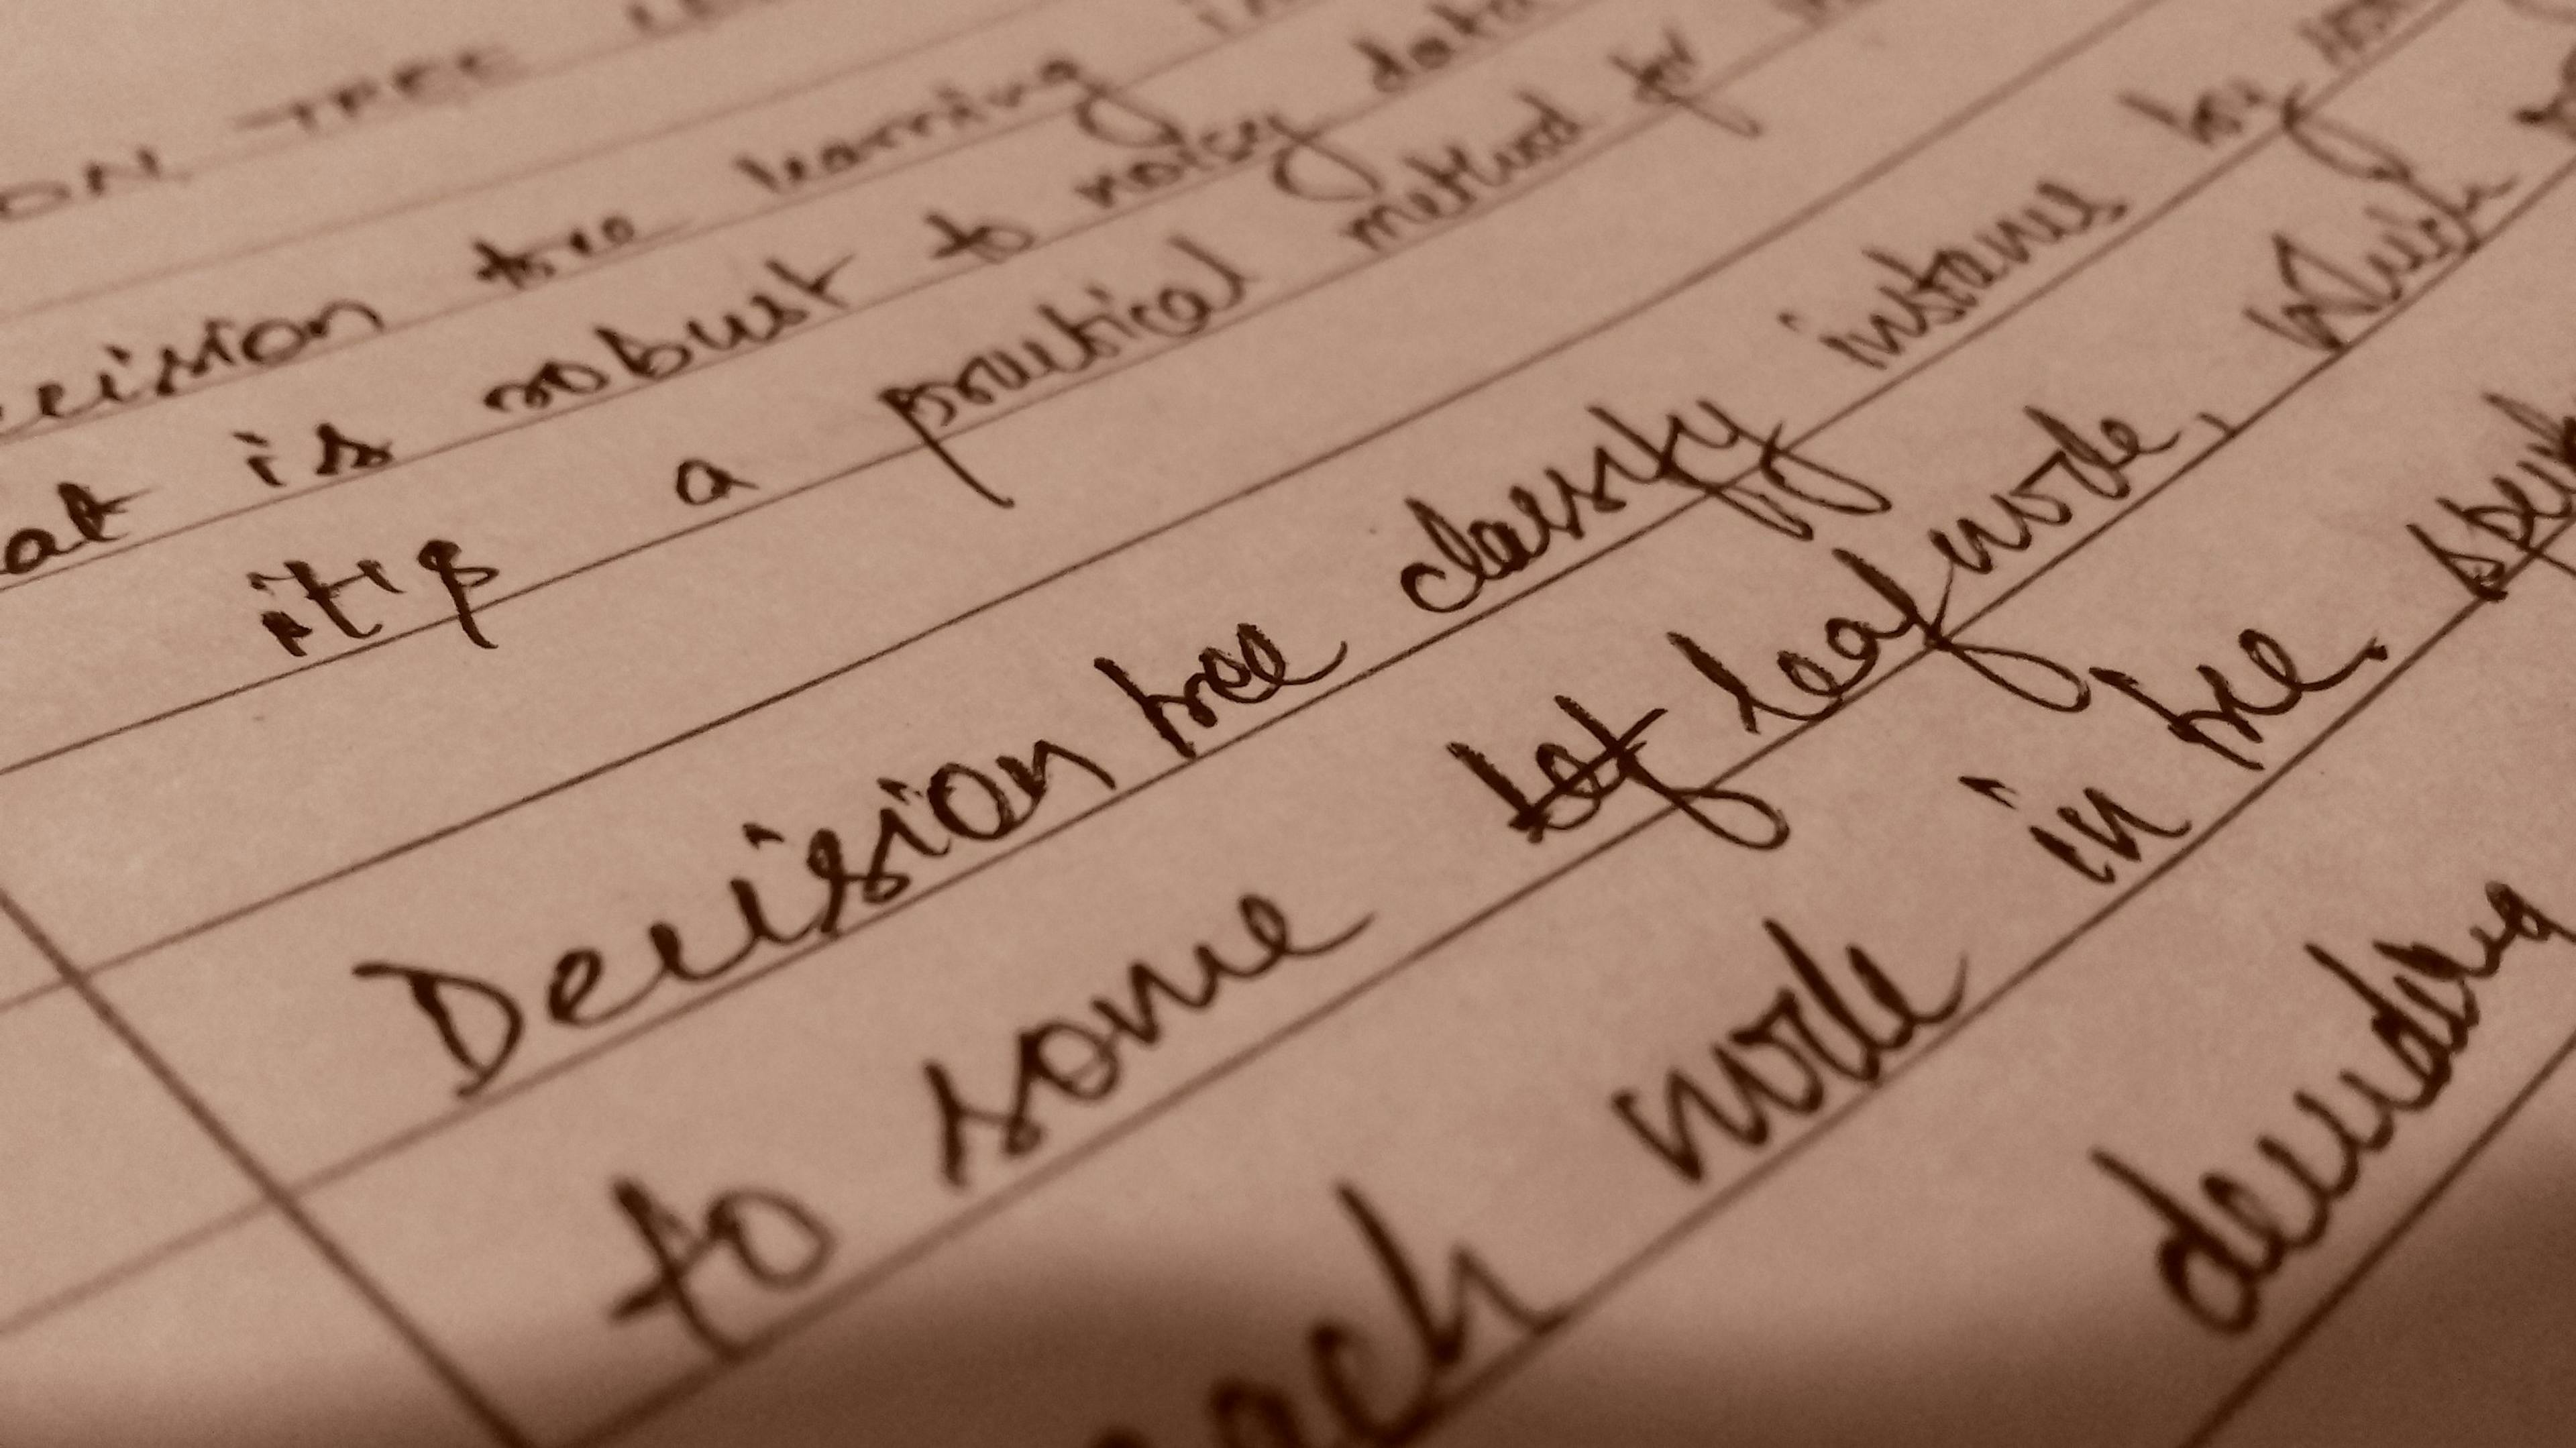 ON TREE
cision tree learning
at is robust to noisy data
it's a practical method for
Decision tree classify instances by
to some leaf node, which
each node in tree